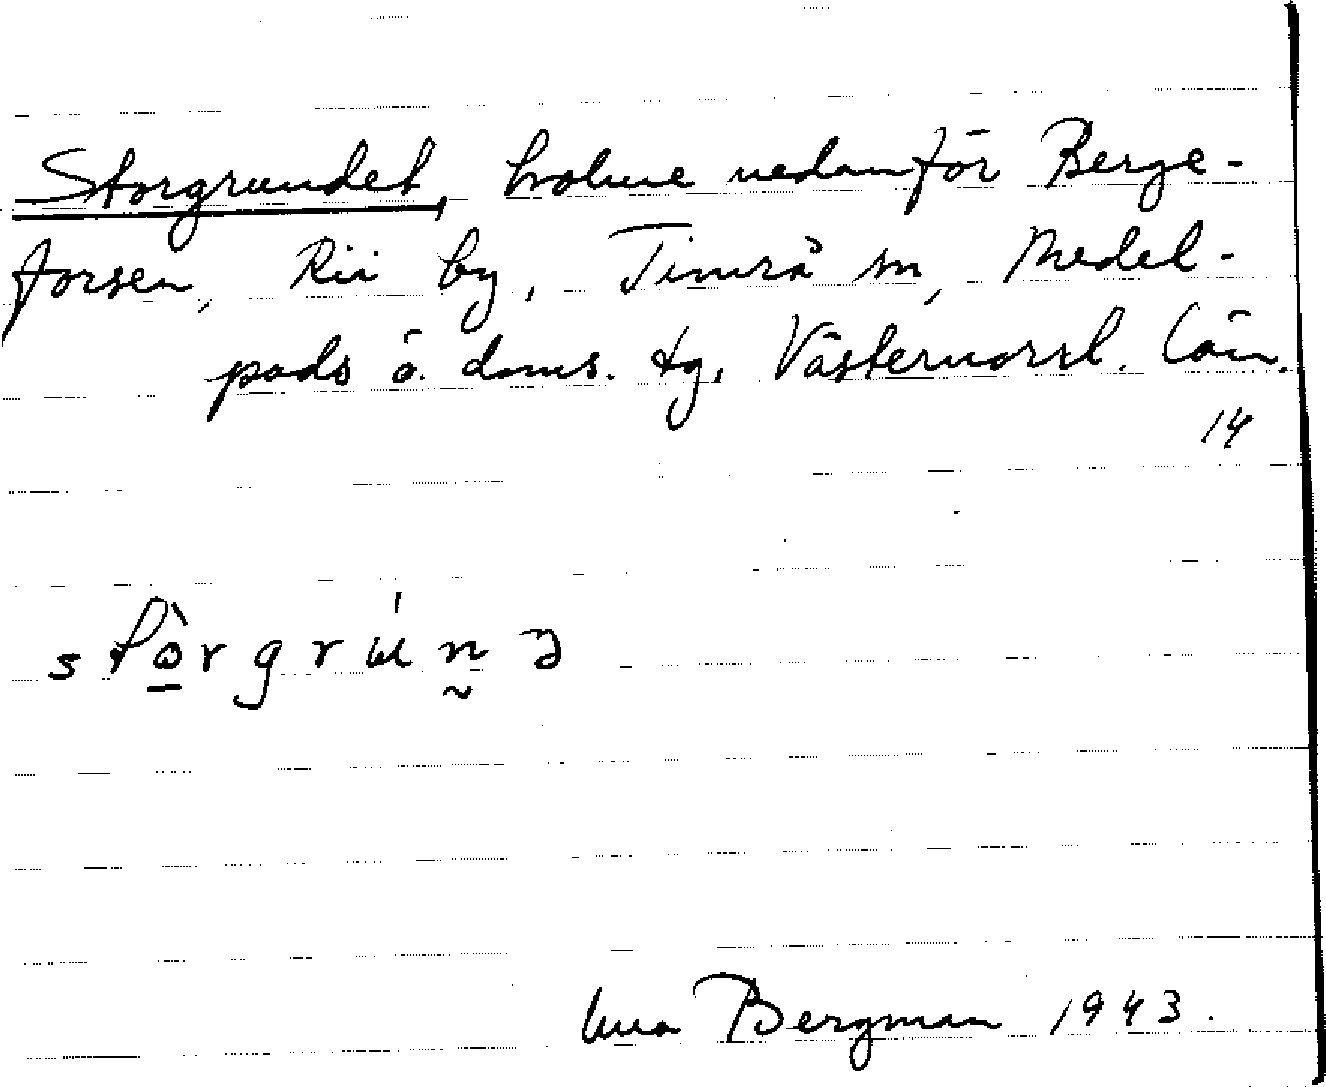 Storgrundet, holme nedanför Berge-
forsen, Rii by, Timrå sn, Medel-
pads ö. doms. tg, Västernorrl. län.
14
stòrgrúnə
Bergman 1943.